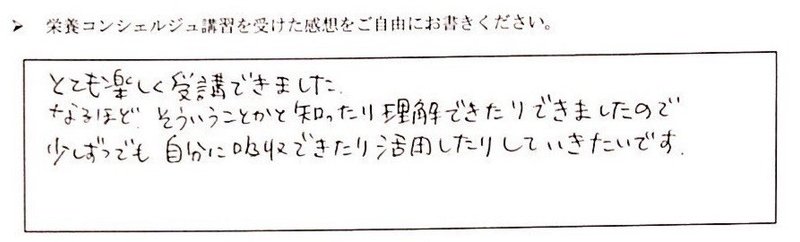 ➤ 栄養コンシェルジュ講習を受けた感想をご自由にお書きください。
とても楽しく受講できました.
なるほど. そういうことかと知ったり理解できたりできましたので
少しずつでも 自分に吸収できたり活用したりしていきたいです.